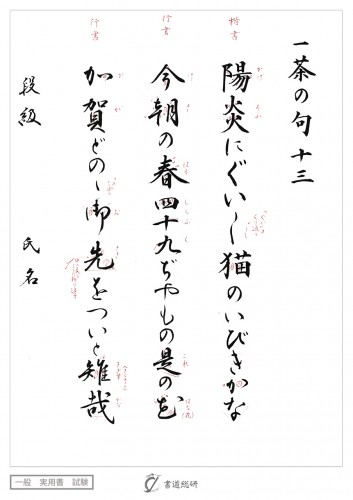 一茶の句 十三
楷書
陽炎にぐい〱猫のいびきかな
かげ ろふ
行書
今朝の春四十九ぢやもの是の花
け さ はる これ
行書
加賀どのゝ御先をついと雉哉
か が お
段級 氏名
一般 実用書 試験
書道総研